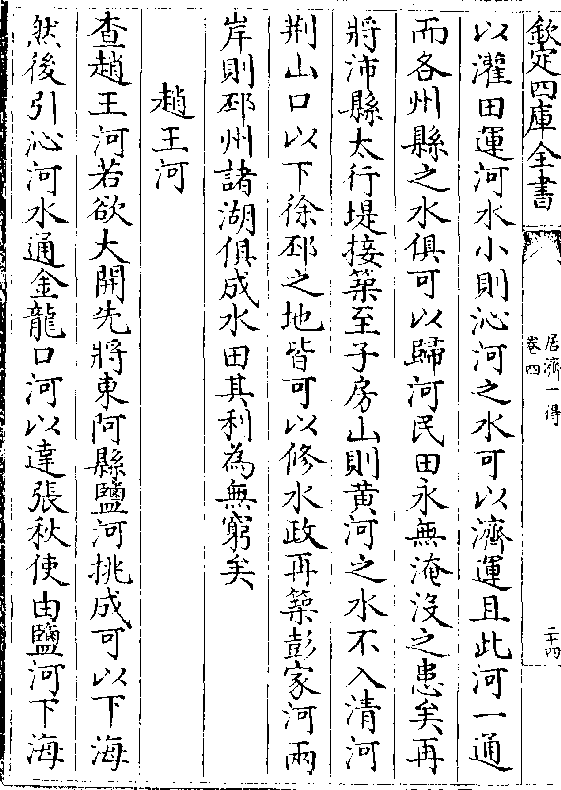 欽定四庫全書
居濟一得
卷四
二十四
以灌田運河水小則沁河之水可以濟運且此河一通
而各州縣之水俱可以歸河民田永無淹沒之患矣再
將沛縣太行堤接築至子房山則黄河之水不入清河
荆山口以下徐邳之地皆可以修水政再築彭家河兩
岸則邳州諸湖俱成水田其利為無窮矣
趙王河
查趙王河若欲大開先將東阿縣鹽河挑成可以下海
然後引沁河水通金龍口河以達張秋使由鹽河下海